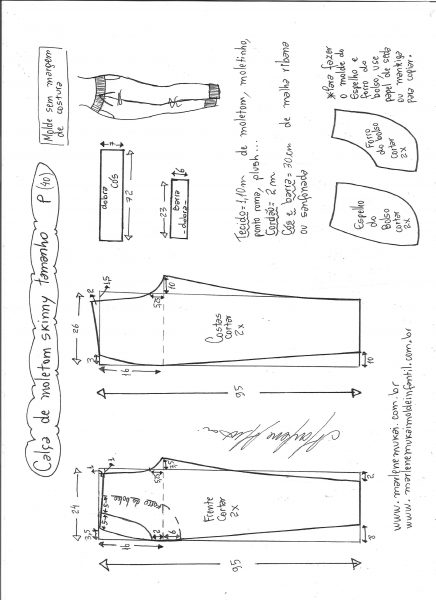 Calça de moletom skinny tamanho P (40)
Molde sem margem
de costura
*Para fazer
o molde do
Espelho e
forro do
bolso, use
papel de seda
ou manteiga
para copiar.
7
dobra
cós
72
6
barra
-dobra-
23
Tecido = 1,10m de moletom, moletinho,
ponto roma, plush...
Cordão = 2 m
Cós e barra = 30cm de malha ribana
ou sanfonada
Forro
do bolso
cortar
2x
Espelho
do
Bolso
cortar
2x
26
2
1,5
3
16
10
Costas
cortar
2x
95
10
24
1
1
3,5
16
2
6
Frente
Cortar
2x
95
2
8
www.marlenemukai.com.br
www.marlenemukaimoldeinfantil.com.br